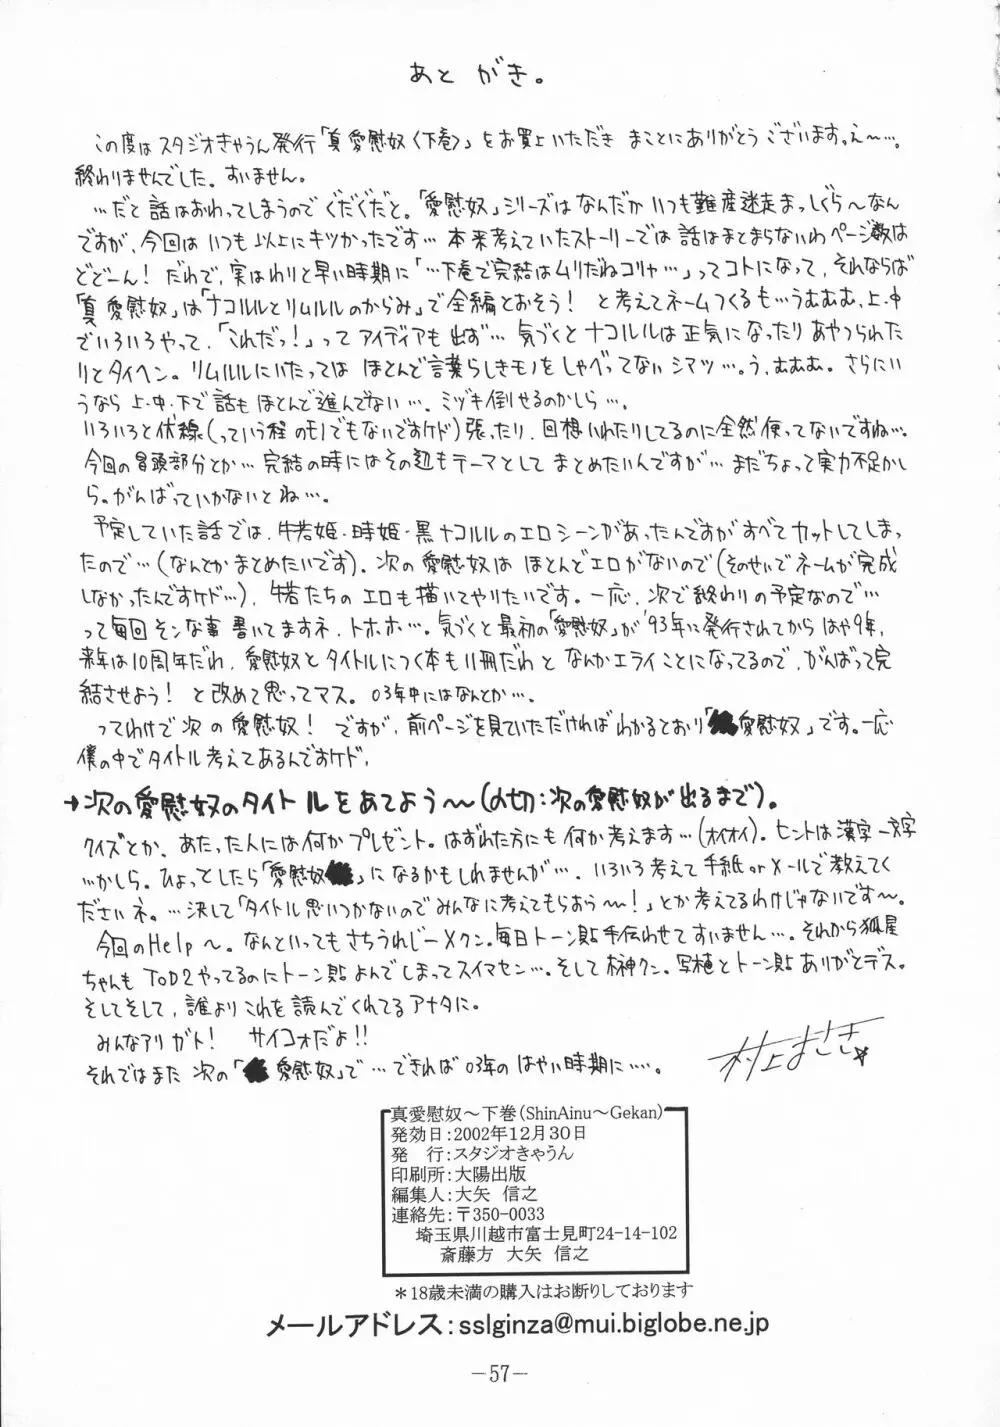 あとがき。
この度はスタジオきゃうん発行「真愛慰奴〈下巻〉」をお買上いただき まことにありがとうございます。え〜…。
終わりませんでした。すいません。
…だと話はおわってしまうのでぐだぐだと。「愛慰奴」シリーズはなんだかいつも難産迷走まっしぐら〜なん
ですが、今回はいつも以上にキツかったです… 本来考えていたストーリーでは話はまとまらないわページ数は
どどーん! だわで、実はわりと早い時期に「…下巻で完結はムリだねコリャ…」ってコトになって、それならば
「真愛慰奴」は「ナコルルとリムルルのからみ」で全編とおそう! と考えてネームつくるも…うむむむ、上・中
でいろいろやって、「これだっ!」ってアイディアも出ず… 気づくとナコルルは正気になったりあやつられた
りとタイヘン。リムルルにいたっては ほとんど言葉らしきモノをしゃべってないシマツ…。う、むむむ。さらにい
うなら上・中・下で話もほとんど進んでない…、ミヅキ倒せるのかしら…。
いろいろと伏線(っていう程のモノでもないですケド)張ったり、回想いれたりしてるのに全然使ってないですね…。
今回の冒頭部分とか… 完結の時にはその辺もテーマとして まとめたいんですが… まだちょって実力不足かし
ら。がんばっていかないとね…。
予定していた話では、牛若姫・時姫・黒ナコルルのエロシーンがあったんですがすべてカットしてしまっ
たので…(なんとかまとめたいです)。次の愛慰奴は ほとんどエロがないので(そのせいでネームが完成
しなかったんですケド…)、牛若たちのエロも描いてやりたいです。一応、次で終わりの予定なので…
って毎回そンな事 書いてますネ、トホホ…。気づくと最初の「愛慰奴」が'93年に発行されてからはや9年、
来年は10周年だわ、愛慰奴とタイトルにつく本も11冊だわと なんかエライことになってるので、がんばって完
結させよう! と改めて思ってマス。03年中にはなんとか…。
ってわけで次の愛慰奴! ですが、前ページを見ていただければわかるとおり「愛慰奴」です。一応
僕の中でタイトル考えてあるんですケド、
→次の愛慰奴のタイトルをあてよう〜(〆切:次の愛慰奴が出るまで)。
クイズとか、あたった人には何かプレゼント。はずれた方にも何か考えます…(オイオイ)。ヒントは漢字一文字
…かしら。ひょっとしたら「愛慰奴」になるかもしれませんが…、いろいろ考えて手紙orメールで教えてく
ださいネ。…決して「タイトル思いつかないのでみんなに考えてもらおう〜!」とか考えてるわけじゃないです〜。
今回のHelp〜。なんといってもさちうれじーXクン。毎日トーン貼手伝わせてすいません…。それから狐星
ちゃんもTOD2やってるのにトーン貼よんでしまってスイマセン…。そして榊神クン。写植とトーン貼ありがとデス。
そしてそして、誰よりこれを読んでくれてるアナタに。
みんなアリガト! サイコォだよ!!
それではまた 次の「愛慰奴」で…できれば03年のはやい時期に……。
村上まさき
真愛慰奴〜下巻(ShinAinu〜Gekan)
発効日:2002年12月30日
発 行:スタジオきゃうん
印刷所:大陽出版
編集人:大矢 信之
連絡先:〒350-0033
埼玉県川越市富士見町24-14-102
斎藤方 大矢 信之
*18歳未満の購入はお断りしております
メールアドレス:sslginza@mui.biglobe.ne.jp
-57-